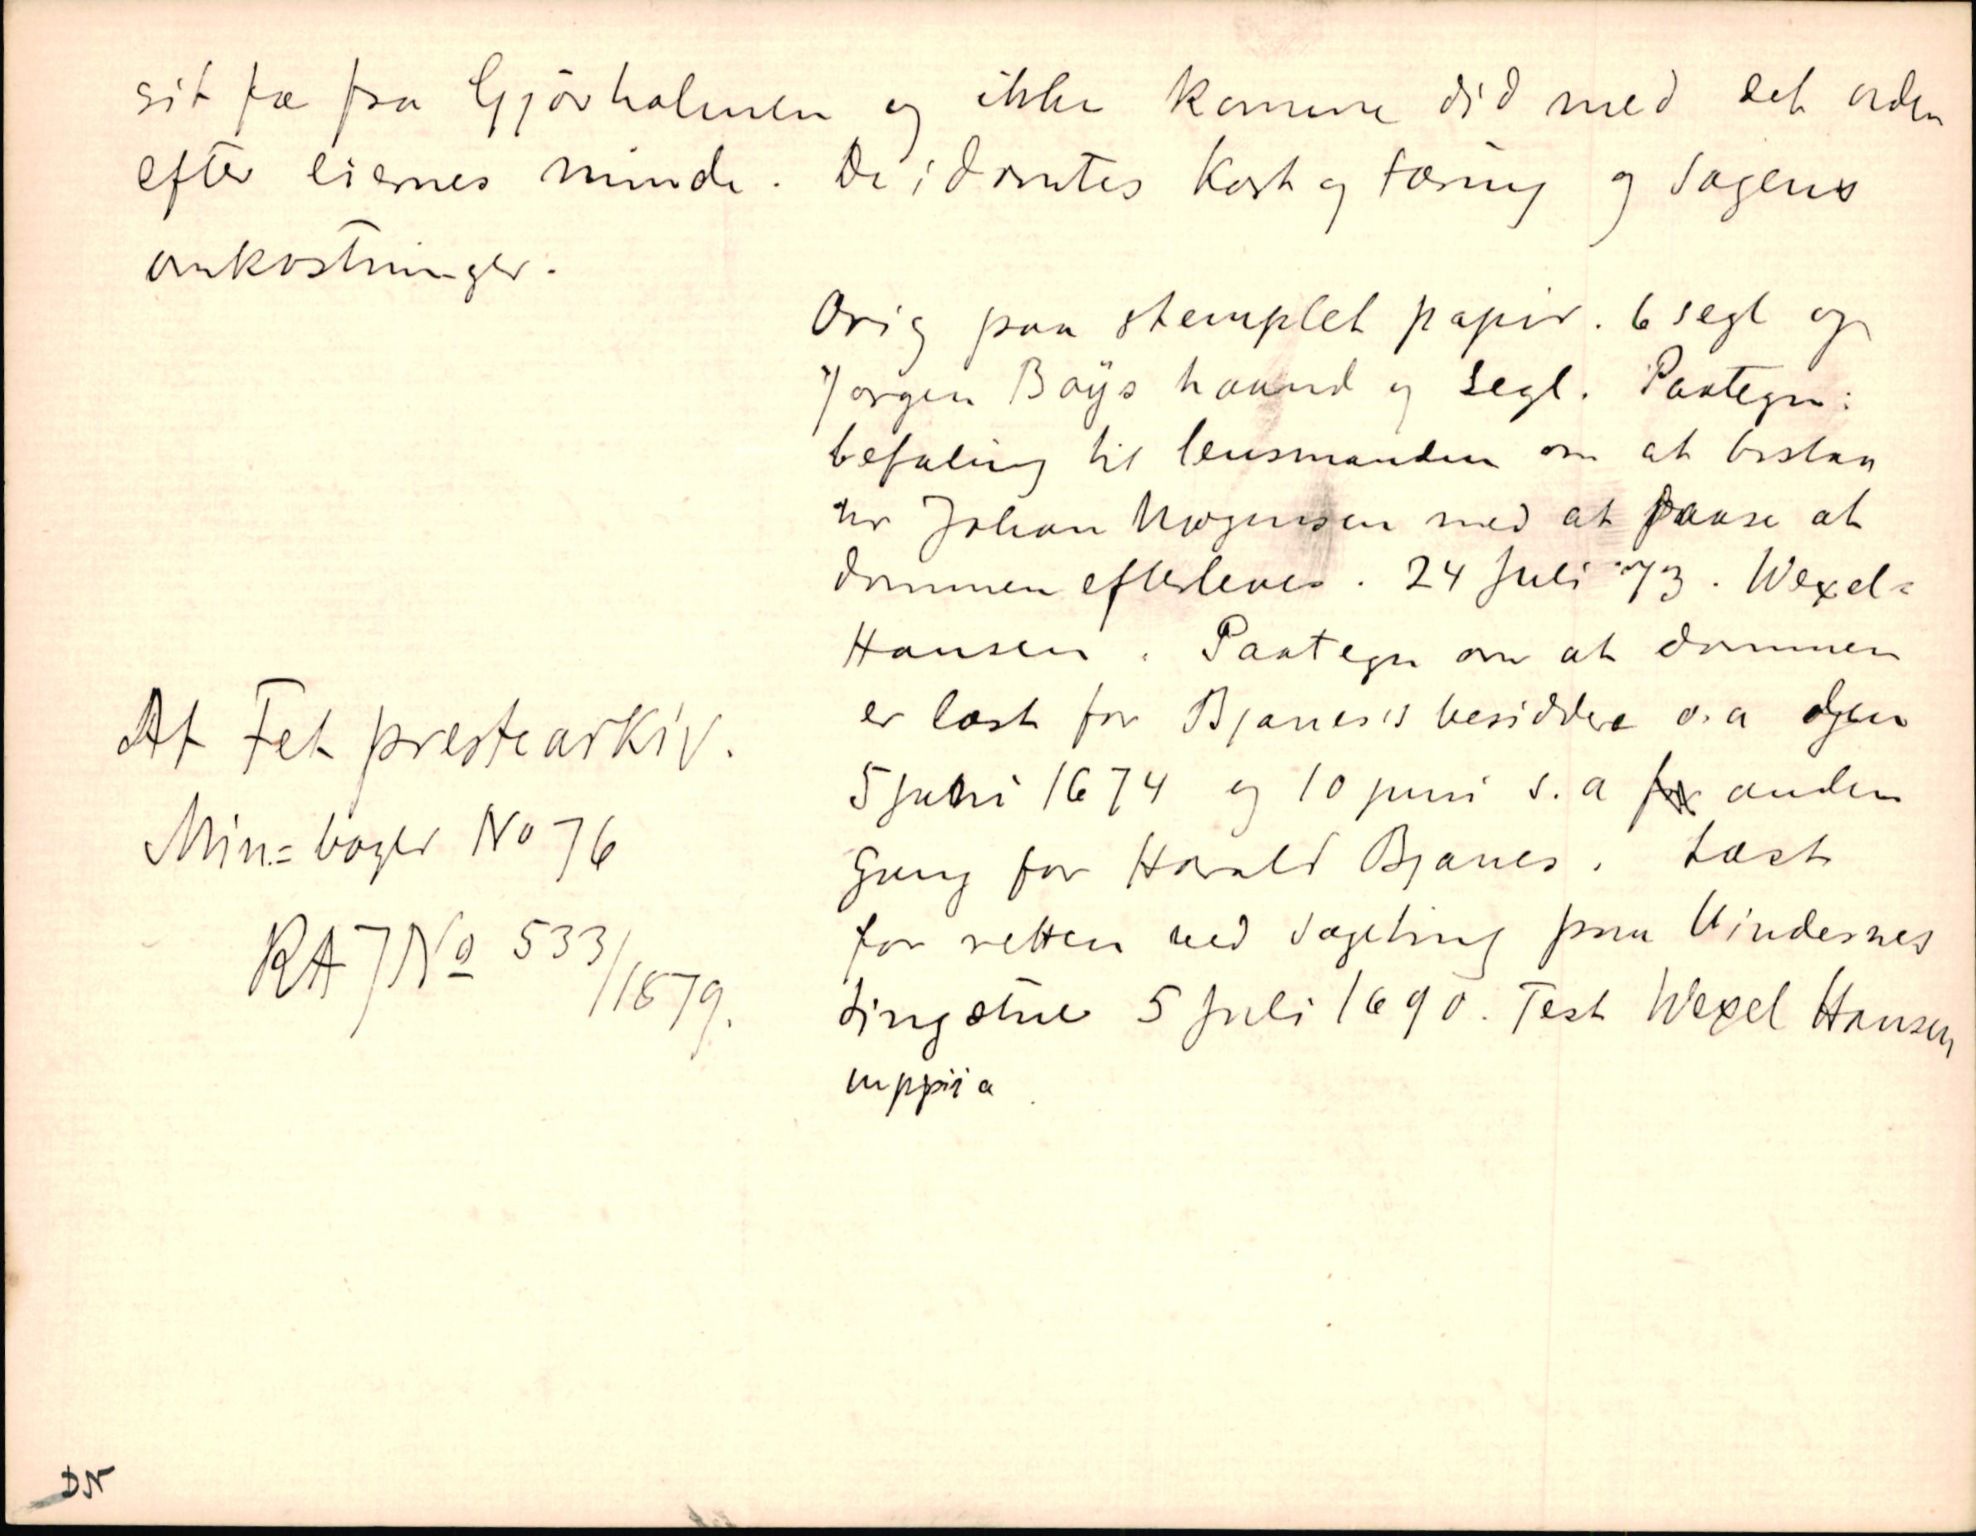 sit fæ fra Gjörholmen og ikke komme did med det uden
efter eiernes minde. De idömtes Kost og tæring og sagens
omkostninger.
Orig paa stemplet papir. 6 segl og
Jørgen Boÿs haand og segl. Paategn:
befaling til lensmanden om at bistaa
hr Johan Mogensen med at paase at
dommen efterleves. 24 Juli 73. Wexel=
Hansen. Paategn om at dommen
er læst for Bjanes's besiddere o.a dgen
5 Juni 1674 og 10 juni s.a anden
Gang for Harald Bjanes. Læst
for retten ved sageting paa Vindernes
tingstue 5 Juli 1690. Test Wexel Hansen
mppria
Af Fet prestearkiv.
Min=bøger No 76
RA JNo 533/1879.
DN